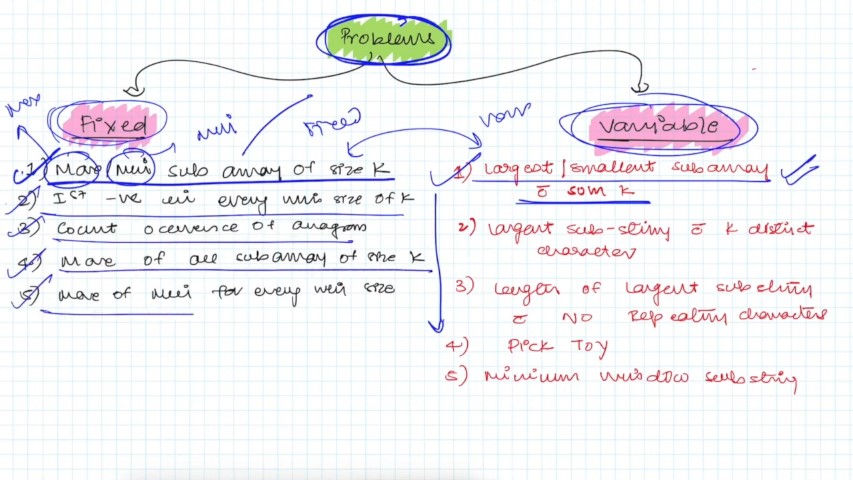 Problems
Fixed
Max
Mini
Fixed
1) Max Mini sub array of size K
2) Ist -ve in every win size of K
3) Count occurence of anagram
4) Max of all subarray of size K
5) Max of Min for every win size
Variable
Vari
1) Largest/Smallest subarray
c̄ sum K
2) Largest sub-string c̄ K distinct
character
3) Length of Largest substring
c̄ NO Repeating characters
4) Pick TOY
5) Minimum window substring